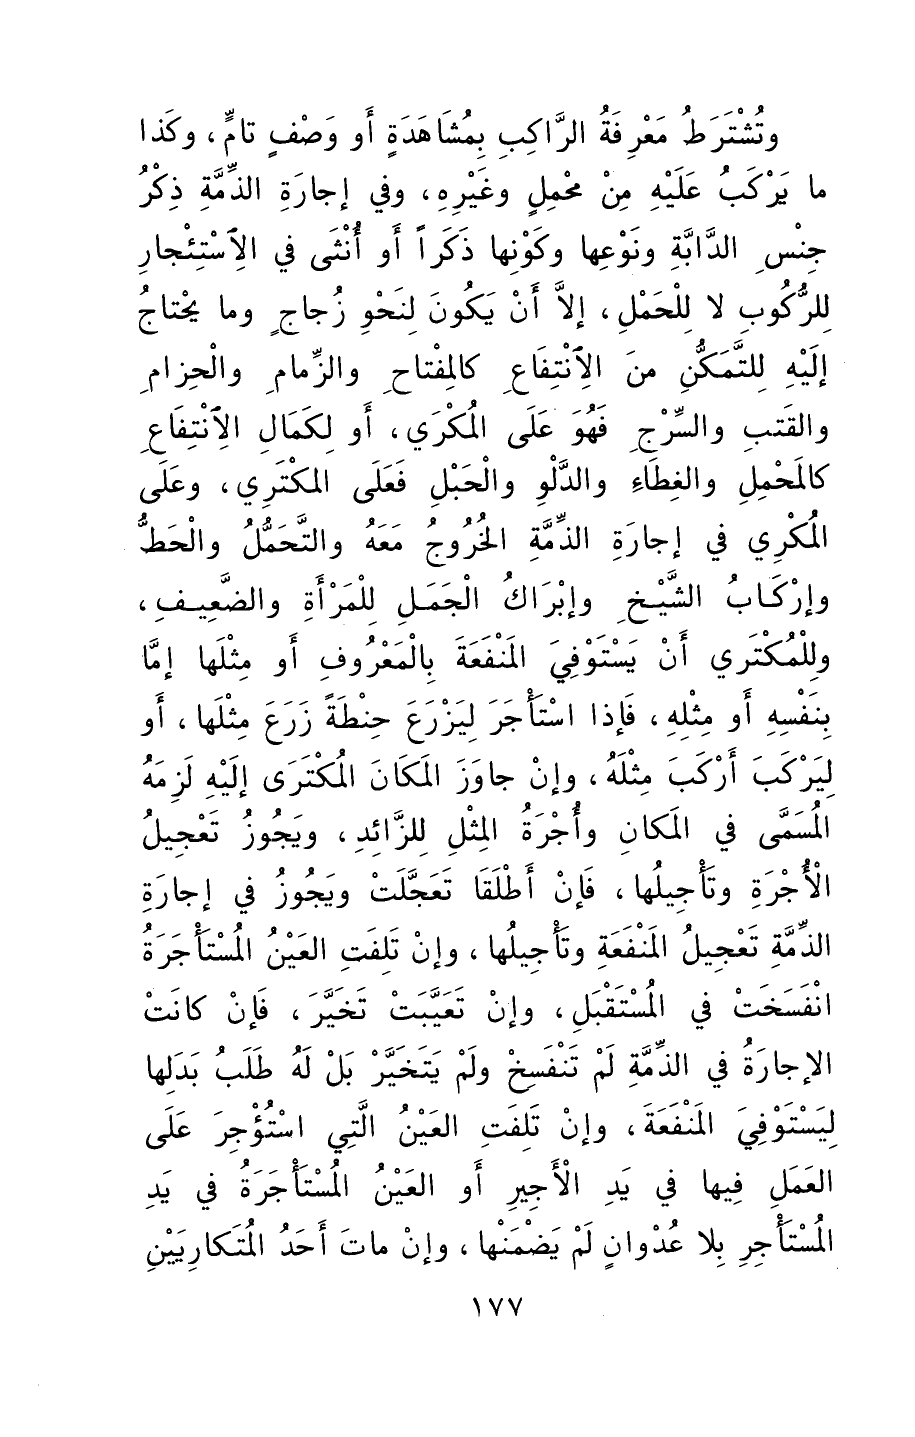 وتُشْتَرَطُ مَعْرِفَةُ الرَّاكِبِ بِمُشَاهَدَةٍ أَو وَصْفٍ تامٍّ، وكَذا
ما يَرْكَبُ عَلَيْهِ مِنْ مَحْمِلٍ وغَيْرِهِ، وفي إجارَةِ الذِّمَّةِ ذِكْرُ
جِنْسِ الدَّابَّةِ ونَوْعِها وكَوْنِها ذَكَراً أَو أُنْثَى في الِاسْتِئْجارِ
لِلرُّكُوبِ لا لِلْحَمْلِ، إلاَّ أَنْ يَكُونَ لِنَحْوِ زُجاجٍ وما يَحْتاجُ
إلَيْهِ لِلتَّمَكُّنِ منَ الِانْتِفَاعِ كالمِفْتاحِ والزِّمامِ والْحِزامِ
والقَتَبِ والسِّرْجِ فَهُوَ عَلَى المُكْرَي، أَو لِكَمَالِ الِانْتِفَاعِ
كالمَحْمِلِ والغِطَاءِ والدَّلْوِ والْحَبْلِ فَعَلَى المكْتَرِي، وعَلَى
المُكْرِي في إجارَةِ الذِّمَّةِ الخُرُوجُ مَعَهُ والتَّحَمُّلُ والْحَطُّ
وإرْكَابُ الشَّيْخِ وإبْرَاكُ الْجَمَلِ لِلْمَرْأَةِ والضَّعِيفِ،
ولِلْمُكْتَرِي أَنْ يَسْتَوْفِيَ المَنْفَعَةَ بِالْمَعْرُوفِ أَو مِثْلَها إمَّا
بِنَفْسِهِ أَو مِثْلِهِ، فَإذا اسْتَأْجَرَ لِيَزْرَعَ حِنْطَةً زَرَعَ مِثْلَها، أَو
لِيَرْكَبَ أَرْكَبَ مِثْلَهُ، وإنْ جاوَزَ المَكَانَ المُكْتَرَى إلَيْهِ لَزِمَهُ
المُسَمَّى في المَكانِ وأُجْرَةُ المِثْلِ لِلزَّائِدِ، ويَجُوزُ تَعْجِيلُ
الْأُجْرَةِ وتَأْجِيلُها، فَإنْ أَطْلَقَا تَعَجَّلَتْ ويَجُوزُ في إجارَةِ
الذِّمَّةِ تَعْجِيلُ المَنْفَعَةِ وتَأْجِيلُها، وإنْ تَلِفَتِ العَيْنُ المُسْتَأْجَرَةُ
انْفَسَخَتْ في المُسْتَقْبَلِ، وإنْ تَعَيَّبَتْ تَخَيَّرَ، فَإنْ كانَتْ
الإجارَةُ في الذِّمَّةِ لَمْ تَنْفَسِخْ ولَمْ يَتَخَيَّرْ بَلْ لَهُ طَلَبُ بَدَلِها
لِيَسْتَوْفِيَ المَنْفَعَةَ، وإنْ تَلِفَتِ العَيْنُ الَّتِي اسْتُؤْجِرَ عَلَى
العَمَلِ فِيها في يَدِ الْأَجِيرِ أَو العَيْنُ المُسْتَأْجَرَةُ في يَدِ
المُسْتَأْجِرِ بِلا عُدْوانٍ لَمْ يَضْمَنْها، وإنْ ماتَ أَحَدُ المُتَكارِيَيْنِ
١٧٧